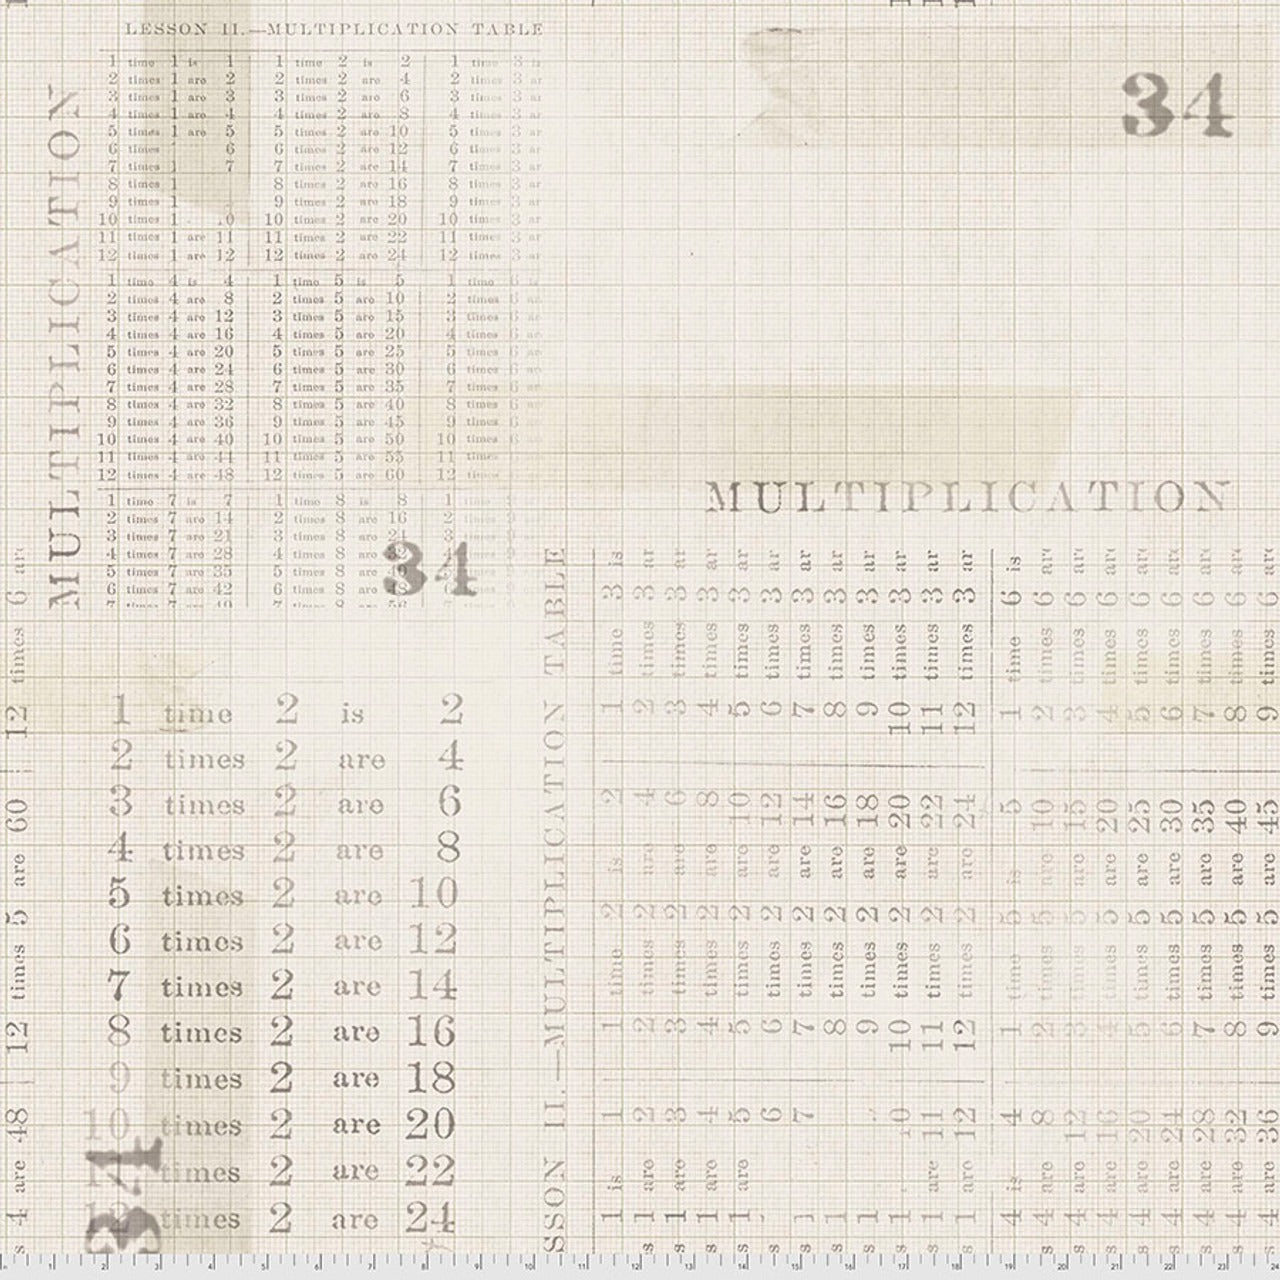 LESSON II.—MULTIPLICATION TABLE
1 time 1 is 1 1 time 2 is 2 1 time 3 is
2 times 1 are 2 2 times 2 are 4 2 times 3 ar
3 times 1 are 3 3 times 2 are 6 3 times 3 ar
4 times 1 are 4 4 times 2 are 8 4 times 3 ar
5 times 1 are 5 5 times 2 are 10 5 times 3 ar
6 times 6 6 times 2 are 12 6 times 3 ar
7 times 1 7 7 times 2 are 14 7 times 3 ar
8 times 1 8 times 2 are 16 8 times 3 ar
9 times 1 9 times 2 are 18 9 times 3 ar
10 times 1 0 10 times 2 are 20 10 times 3 ar
11 times 1 are 11 11 times 2 are 22 11 times 3 ar
12 times 1 are 12 12 times 2 are 24 12 times 3 ar
1 time 4 is 4 1 time 5 is 5 1 time 6 is
2 times 4 are 8 2 times 5 are 10 2 times 6 ar
3 times 4 are 12 3 times 5 are 15 3 times 6 ar
4 times 4 are 16 4 times 5 are 20 4 times 6 ar
5 times 4 are 20 5 times 5 are 25 5 times 6 ar
6 times 4 are 24 6 times 5 are 30 6 times 6 ar
7 times 4 are 28 7 times 5 are 35 7 times 6 ar
8 times 4 are 32 8 times 5 are 40 8 times 6 ar
9 times 4 are 36 9 times 5 are 45 9 times 6
10 times 4 are 40 10 times 5 are 50 10 times 6
11 times 4 are 44 11 times 5 are 55 11 times
12 times 4 are 48 12 times 5 are 60 12 times
1 time 7 is 7 1 time 8 is 8 1
2 times 7 are 14 2 times 8 are 16 2
3 times 7 are 21 3 times 8 are 24 3
4 times 7 are 28 4 times 8 are
5 times 7 are 35 5 times 8 are
6 times 7 are 42 6 times 8 are
MULTIPLICATION
34
34
MULTIPLICATION
1 time 2 is 2
2 times 2 are 4
3 times 2 are 6
4 times 2 are 8
5 times 2 are 10
6 times 2 are 12
7 times 2 are 14
8 times 2 are 16
9 times 2 are 18
10 times 2 are 20
times 2 are 22
12 times 2 are 24
34
s 4 are 48 12 times 5 are 60 12 times 6 ar
SSON II.—MULTIPLICATION TABLE
1 is 1 1 time 2 is 2 1 time 3 is
1 are 2 2 times 2 are 4 2 times 3 ar
1 are 3 3 times 2 are 6 3 times 3 ar
1 are 4 4 times 2 are 8 4 times 3 ar
1 are 5 5 times 2 are 10 5 times 3 ar
6 6 times 2 are 12 6 times 3 ar
1 7 7 times 2 are 14 7 times 3 ar
1 8 times 2 are 16 8 times 3 ar
1 9 times 2 are 18 9 times 3 ar
1 10 10 times 2 are 20 10 times 3 ar
1 are 11 11 times 2 are 22 11 times 3 ar
1 are 12 12 times 2 are 24 12 times 3 ar
4 is 4 1 time 5 is 5 1 time 6 is
s 4 are 8 2 times 5 are 10 2 times 6 are
s 4 are 12 3 times 5 are 15 3 times 6 are
s 4 are 16 4 times 5 are 20 4 times 6 are
s 4 are 20 5 times 5 are 25 5 times 6 are
s 4 are 24 6 times 5 are 30 6 times 6 are
s 4 are 28 7 times 5 are 35 7 times 6 are
s 4 are 32 8 times 5 are 40 8 times 6 are
s 4 are 36 9 times 5 are 45 9 times 6 are
1 2 3 4 5 6 7 8 9 10 11 12 13 14 15 16 17 18 19 20 21 22 23 24